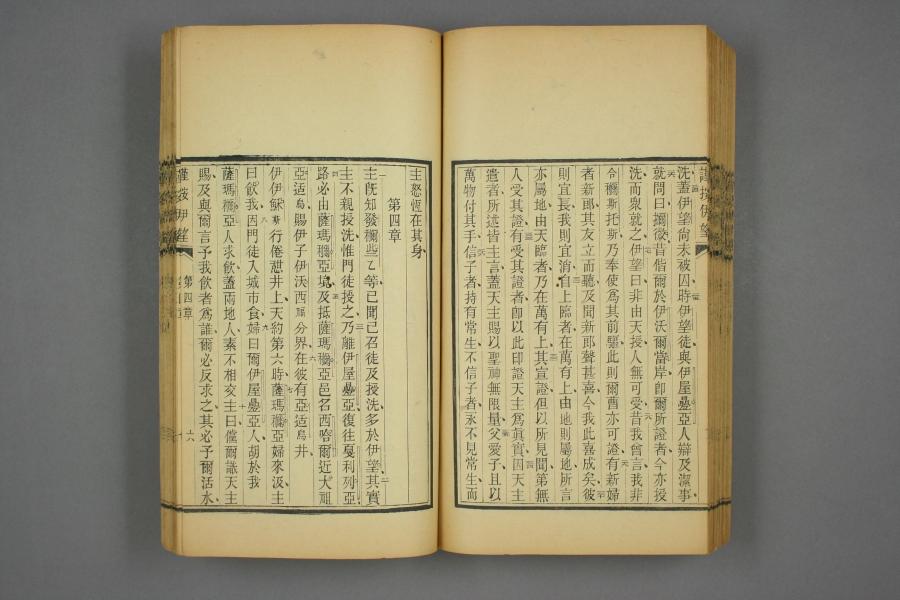 洗蓋伊望尚未被囚時伊望徒與伊屋疊亞人辯及潔事
就問曰
昔偕爾於伊沃爾當岸卽爾所證者今亦授
洗而衆就之伊望曰非由天授人無可受昔我曾言我非
合爾斯托斯乃奉使爲其前驅此則爾曹亦可證有新婦
者新郎其友立而聽及聞新郎聲甚喜今我此喜成矣彼
則宜長我則宜消自上臨者在萬有上由地則屬地所言
亦屬地由天臨者乃在萬有上其宣證但以所見聞第無
人受其證有受其證者卽以此印證天主爲眞實因天主
遣者所述皆主言蓋天主賜以聖神無限量父愛子且以
萬物付其手信子者持有常生不信子者永不見常生而
主怒恆在其身
第四章
主旣知發
些乙等已聞已召徒及授洗多於伊望其實
主不親授洗惟門徒授之乃離伊屋疊亞復往戛利列亞
路必由薩瑪
亞境及抵薩瑪
亞邑名西哈爾近大祖
亞适烏賜伊子伊沃西
分界在彼有亞适烏井
伊伊穌斯行倦憇井上天約第六時薩瑪
亞婦來汲主
曰飮我因門徒入城市食婦曰爾伊屋疊亞人胡於我
薩瑪
亞人求飮蓋兩地人素不相交主曰儻爾識天主
賜及與爾言予我飮者爲誰爾必反求之其必予爾活水
第四章